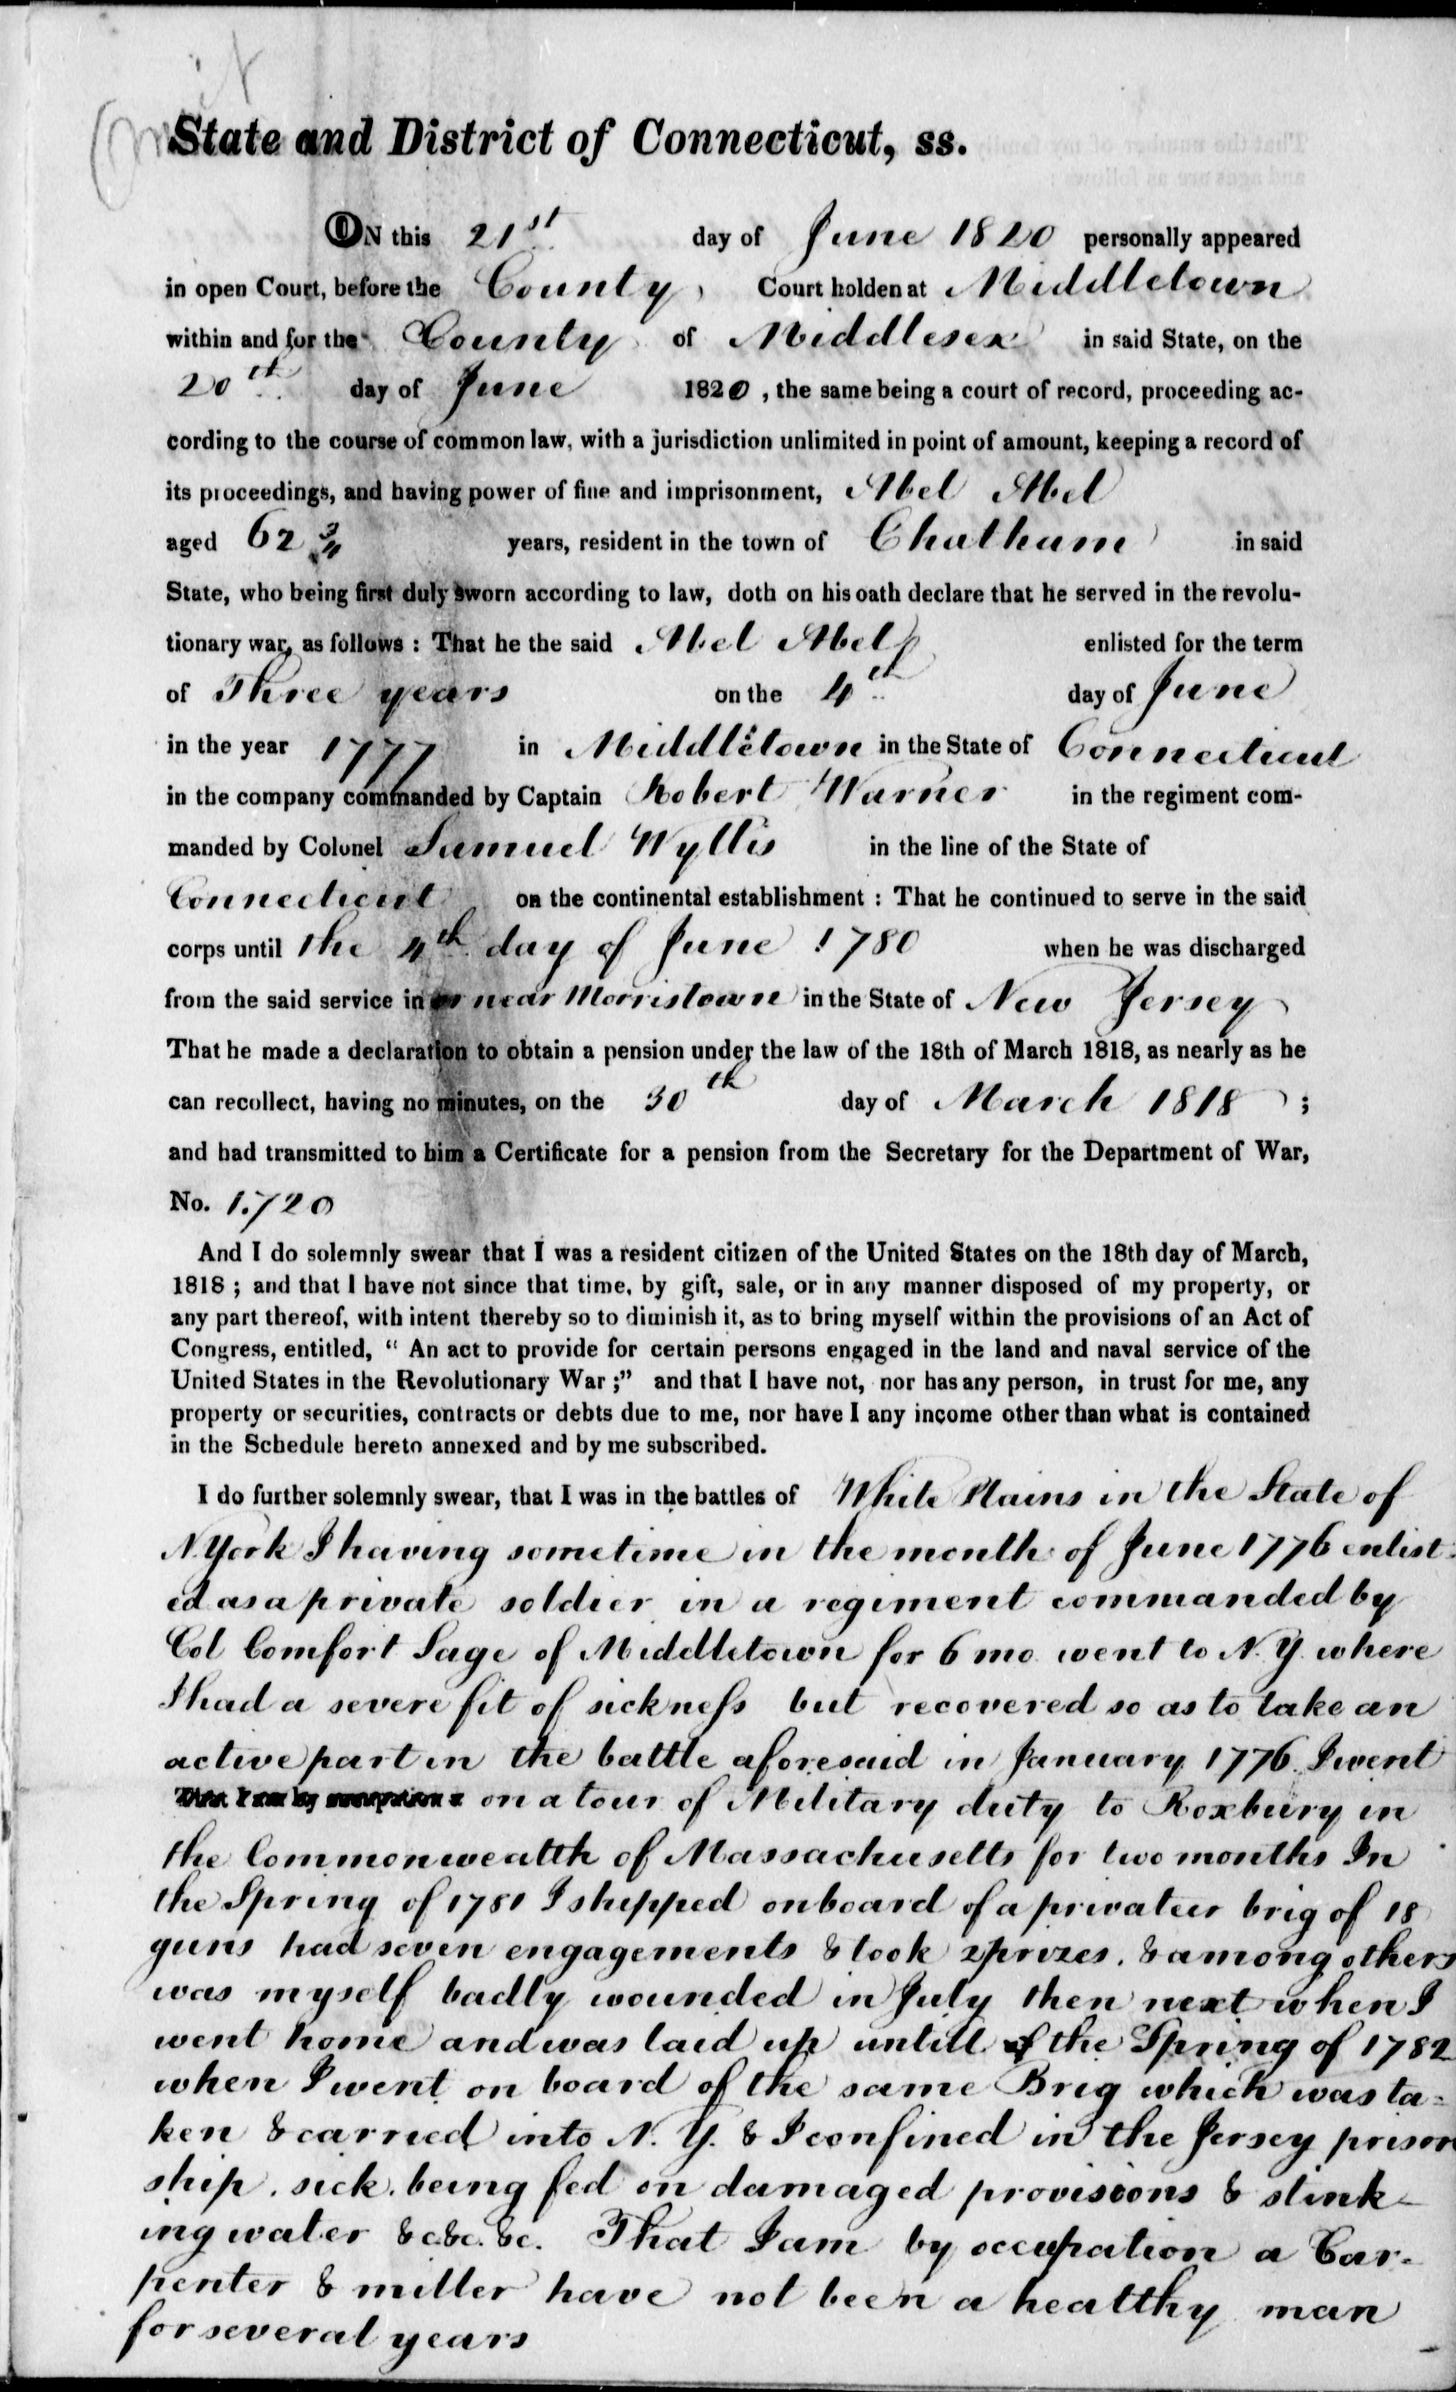 (Omit
State and District of Connecticut, ss.
ON this 21st day of June 1820 personally appeared
in open Court, before the County Court holden at Middletown
within and for the County of Middlesex in said State, on the
20th day of June 1820, the same being a court of record, proceeding ac-
cording to the course of common law, with a jurisdiction unlimited in point of amount, keeping a record of
its proceedings, and having power of fine and imprisonment, Abel Abel
aged 62 3/4 years, resident in the town of Chatham in said
State, who being first duly sworn according to law, doth on his oath declare that he served in the revolu-
tionary war, as follows : That he the said Abel Abel enlisted for the term
of Three years on the 4th day of June
in the year 1777 in Middletown in the State of Connecticut
in the company commanded by Captain Robert Warner in the regiment com-
manded by Colonel Samuel Wyllis in the line of the State of
Connecticut on the continental establishment : That he continued to serve in the said
corps until the 4th day of June 1780 when he was discharged
from the said service in or near Morristown in the State of New Jersey
That he made a declaration to obtain a pension under the law of the 18th of March 1818, as nearly as he
can recollect, having no minutes, on the 30th day of March 1818 ;
and had transmitted to him a Certificate for a pension from the Secretary for the Department of War,
No. 1.720
And I do solemnly swear that I was a resident citizen of the United States on the 18th day of March,
1818 ; and that I have not since that time, by gift, sale, or in any manner disposed of my property, or
any part thereof, with intent thereby so to diminish it, as to bring myself within the provisions of an Act of
Congress, entitled, " An act to provide for certain persons engaged in the land and naval service of the
United States in the Revolutionary War ;" and that I have not, nor has any person, in trust for me, any
property or securities, contracts or debts due to me, nor have I any income other than what is contained
in the Schedule hereto annexed and by me subscribed.
I do further solemnly swear, that I was in the battles of White Plains in the State of
N. York I having sometime in the month of June 1776 enlist=
ed as a private soldier in a regiment commanded by
Col Comfort Sage of Middletown for 6 mo. went to N. Y. where
I had a severe fit of sickness but recovered so as to take an
active part in the battle aforesaid in January 1776. I went
That I am by occupation a on a tour of Military duty to Roxbury in
the Commonwealth of Massachusetts for two months In
the Spring of 1781 I shipped on board of a privateer brig of 18
guns had seven engagements & took 2 prizes. & among others
was myself badly wounded in July then next when I
went home and was laid up untill of the Spring of 1782
when I went on board of the same Brig which was ta=
ken & carried into N. Y. & I confined in the Jersey prison
ship. sick. being fed on damaged provisions & stink-
ing water &c &c. &c. That I am by occupation a Car=
penter & miller have not been a healthy man
for several years